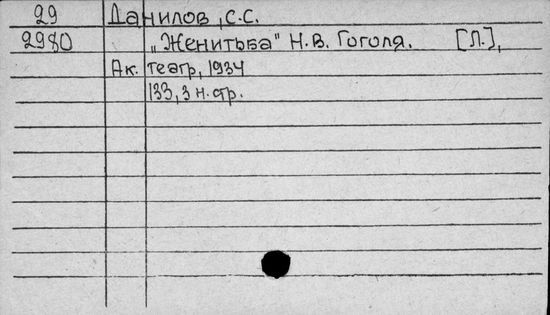 29 Данилов, С.С.
2980 „Женитьба" Н.В. Гоголя. [Л.],
Ак. театр, 1934
133, 3 н. стр.